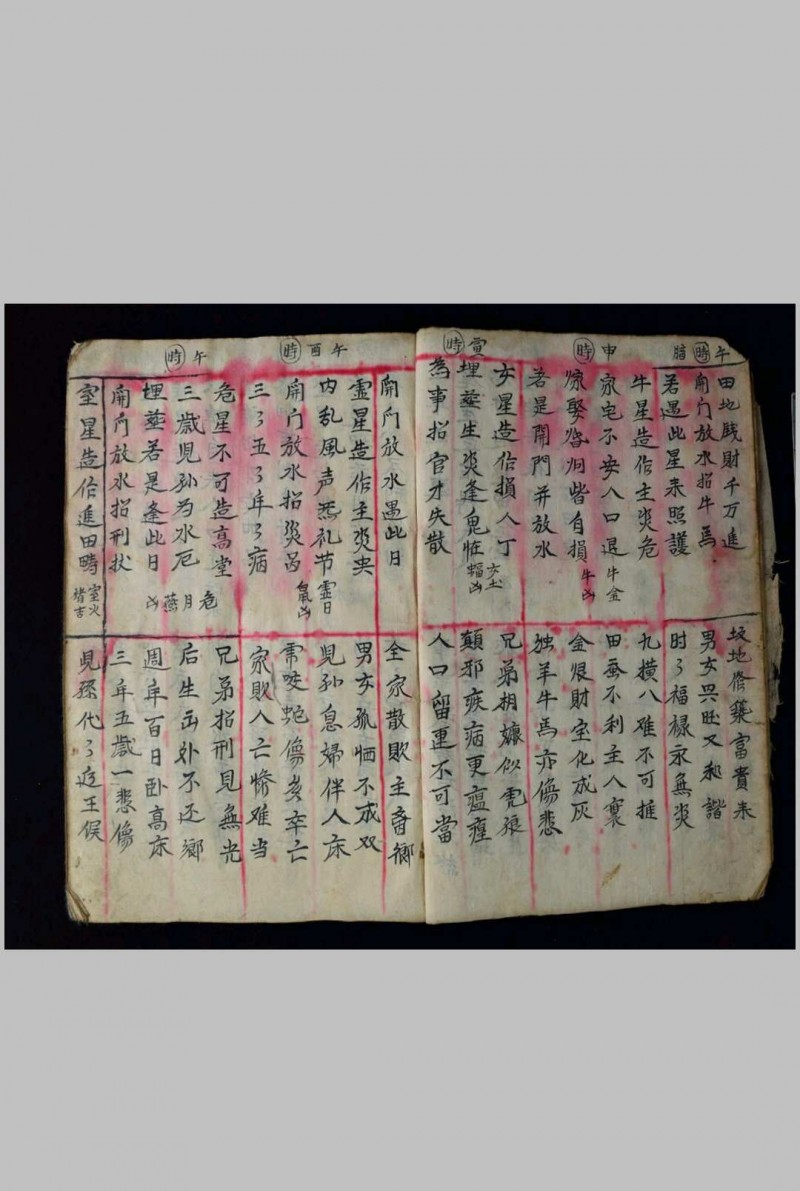 午時
田地賎財千万進
坟地修築富貴来
開门放水招牛馬
男女兴旺又和諧
若遇此星来照護
时々福祿永無災
申時
牛星造作主災危
九横八难不可推
家宅不安人口退
田蚕不利主人衰
牛金牛凶
金銀財宝化成灰
若是開門并放水
猪羊牛馬亦傷悲
寅時
女星造作損人丁
兄弟相嫌似虎狼
埋葬生災逢鬼怪
女土蝠凶
為事招官才失散
人口留連不可當
開门放水遇此日
全家散敗主离鄉
午酉時
虚星造作主災央
男女孤恓不成双
内乱風声无礼节
虚日鼠凶
兒孙息婦伴人床
開门放水招災咼
三々五々年々病
家敗人亡惨难当
午時
危星不可造高堂
兄弟招刑見無光
三歲兒孙为水厄
危月燕凶
埋葬若是逢此日
週年百日卧高床
開门放水招刑扙
三年五歲一悲傷
室星造作進田疇
室火猪吉
兒孫代々近王侯